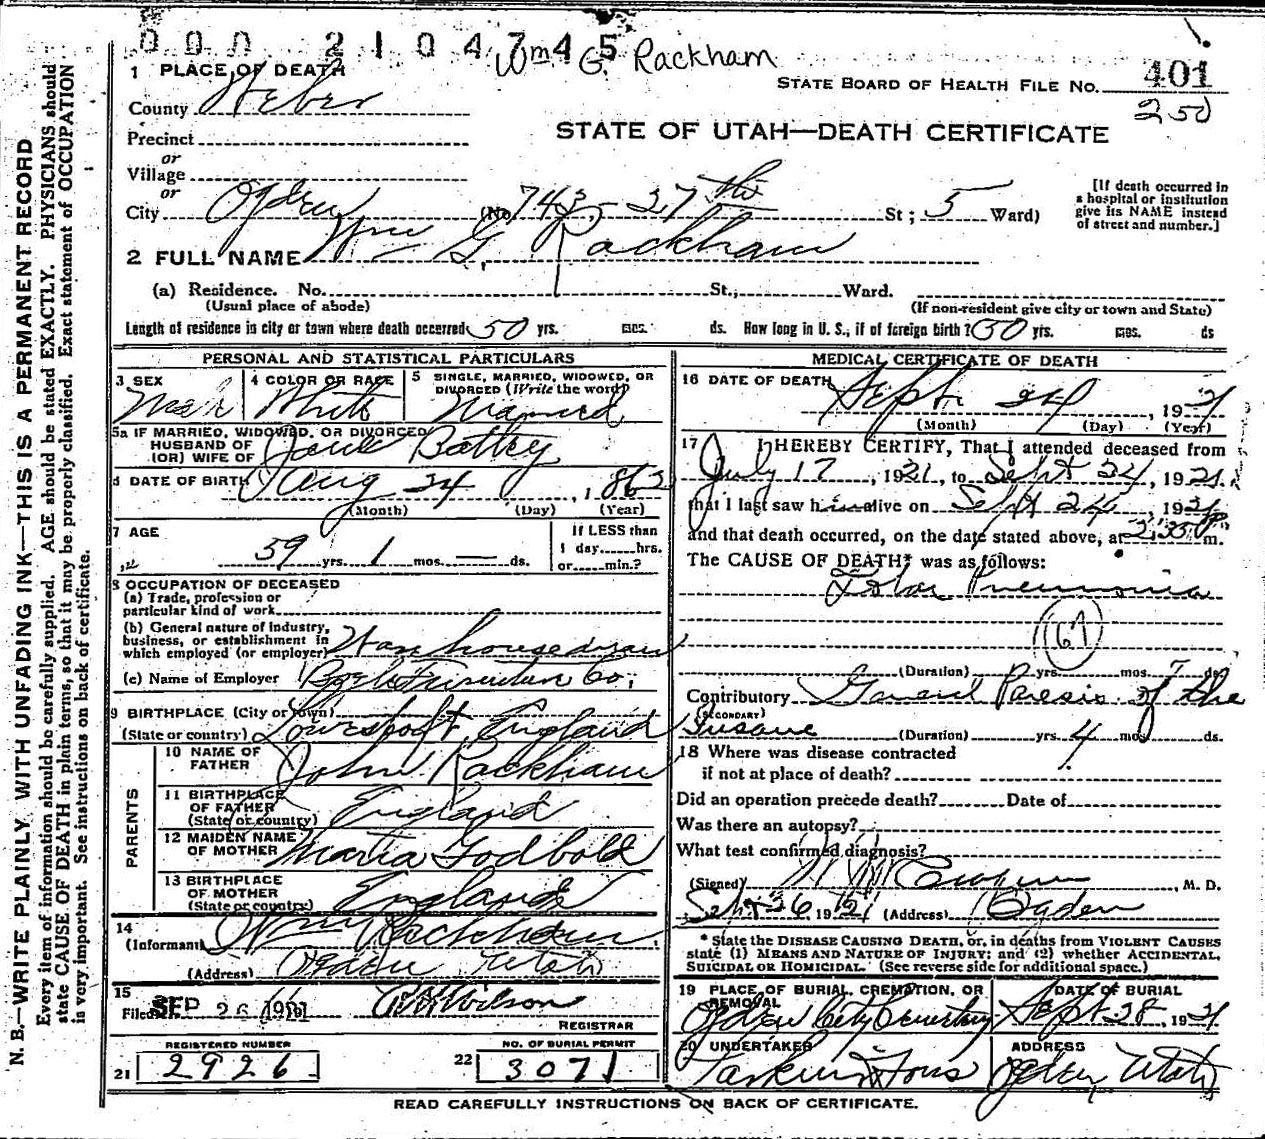 000 2104745
Wm G. Rackham
1 PLACE OF DEATH
STATE BOARD OF HEALTH FILE No. 401
County Weber
250
Precinct
STATE OF UTAH—DEATH CERTIFICATE
or
Village
or
City Ogden (No. 743 - 27th St; 5 Ward)
[If death occurred in
a hospital or institution
give its NAME instead
of street and number.]
2 FULL NAME Wm G. Rackham
(a) Residence. No. St., Ward.
(Usual place of abode) (If non-resident give city or town and State)
Length of residence in city or town where death occurred 50 yrs. mos. ds. How long in U. S., if of foreign birth? 50 yrs. mos. ds
N. B.—WRITE PLAINLY, WITH UNFADING INK—THIS IS A PERMANENT RECORD
Every item of information should be carefully supplied. AGE should be stated EXACTLY. PHYSICIANS should
state CAUSE OF DEATH in plain terms, so that it may be properly classified. Exact statement of OCCUPATION
is very important. See instructions on back of certificate.
PERSONAL AND STATISTICAL PARTICULARS
3 SEX
4 COLOR OR RACE
5 SINGLE, MARRIED, WIDOWED, OR
DIVORCED (Write the word)
White Married
5a IF MARRIED, WIDOWED, OR DIVORCED
HUSBAND OF
(OR) WIFE OF Jane Battey
DATE OF BIRTH Aug 24, 1862
(Month) (Day) (Year)
7 AGE
If LESS than
1 day hrs.
or min.?
59 yrs. 1 mos. — ds.
8 OCCUPATION OF DECEASED
(a) Trade, profession or
particular kind of work
(b) General nature of industry,
business, or establishment in
which employed (or employer) Warehouseman
(c) Name of Employer Boyle Furniture Co.
9 BIRTHPLACE (City or town)
(State or country) Lowestoft, England
PARENTS
10 NAME OF
FATHER John Rackham
11 BIRTHPLACE
OF FATHER
(State or country) England
12 MAIDEN NAME
OF MOTHER Maria Godbold
13 BIRTHPLACE
OF MOTHER
(State or country) England
14
(Informant) Wm Rackham
(Address) Ogden Utah
15
Filed SEP 26 1921 Wilson
REGISTRAR
REGISTERED NUMBER
21 2926
NO. OF BURIAL PERMIT
22 3071
MEDICAL CERTIFICATE OF DEATH
16 DATE OF DEATH
Sept. 24, 1921
(Month) (Day) (Year)
17 I HEREBY CERTIFY, That I attended deceased from
July 17, 1921, to Sept 24, 1921.
that I last saw him alive on Sept 24, 1921
and that death occurred, on the date stated above, at 2:35 P m.
The CAUSE OF DEATH* was as follows:
Lobar Pneumonia
67
(Duration) yrs. mos. 7 ds.
Contributory General Paresis of the
(SECONDARY)
Insane (Duration) yrs. 4 mos. ds.
18 Where was disease contracted
if not at place of death?
Did an operation precede death? Date of
Was there an autopsy?
What test confirmed diagnosis?
(Signed) , M. D.
Sept 26 1921 (Address) Ogden
* State the DISEASE CAUSING DEATH, or, in deaths from VIOLENT CAUSES
state (1) MEANS AND NATURE OF INJURY; and (2) whether ACCIDENTAL,
SUICIDAL OR HOMICIDAL. (See reverse side for additional space.)
19 PLACE OF BURIAL, CREMATION, OR
REMOVAL
DATE OF BURIAL
Ogden City Cemetery Sept 28, 1921
20 UNDERTAKER
ADDRESS
Larkin & Sons Ogden Utah
READ CAREFULLY INSTRUCTIONS ON BACK OF CERTIFICATE.